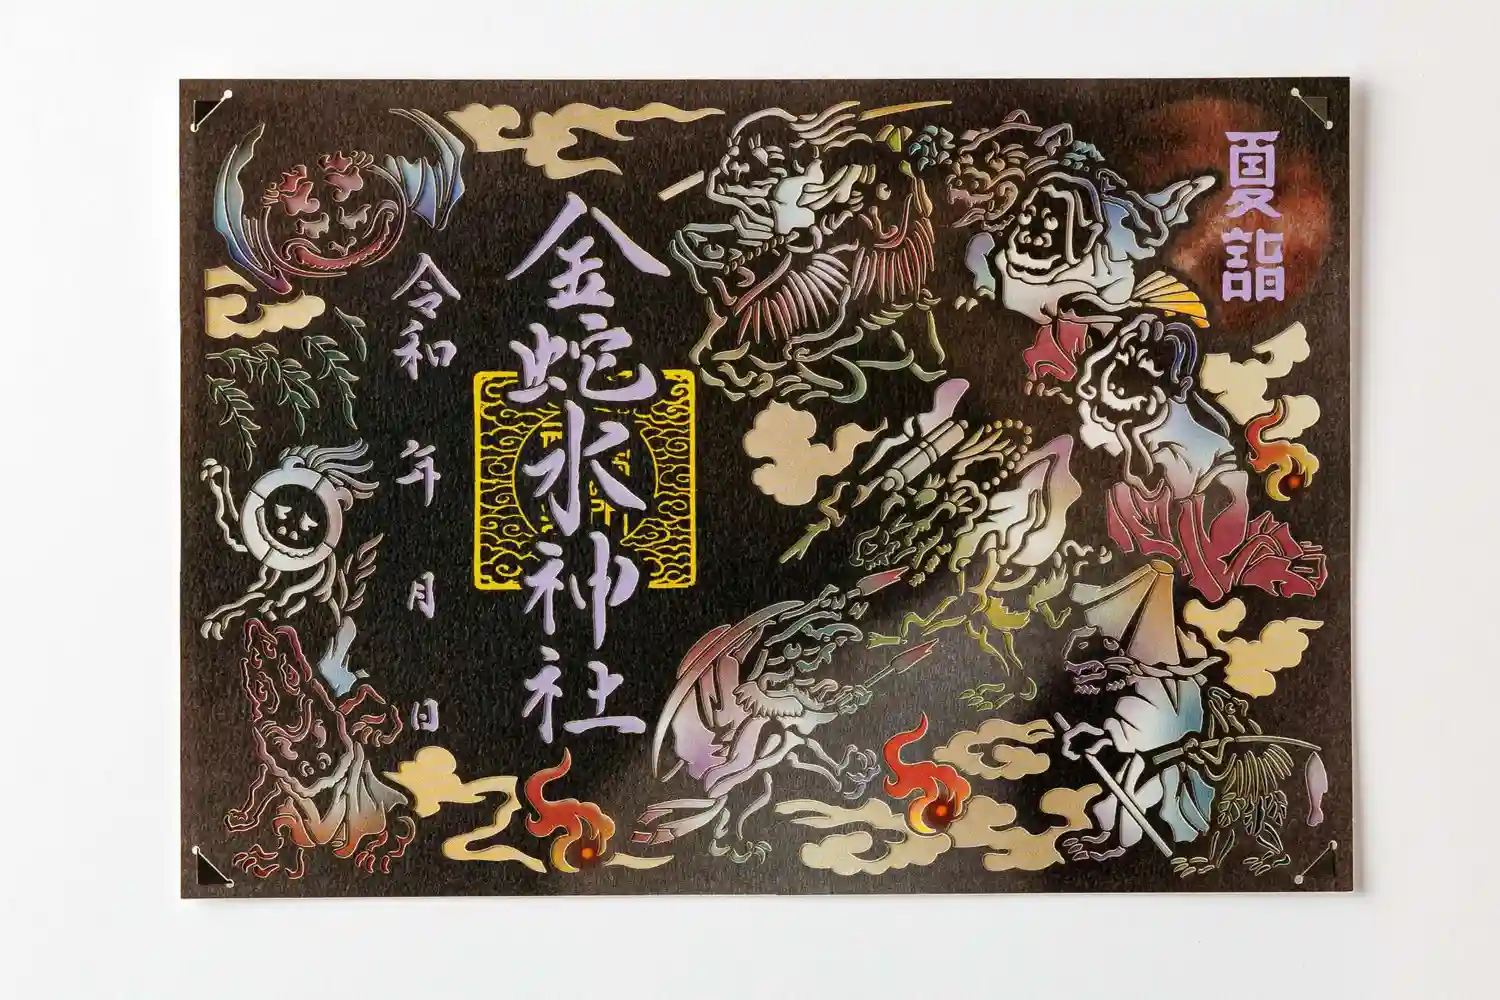 夏詣
金蛇水神社
令和 年 月 日